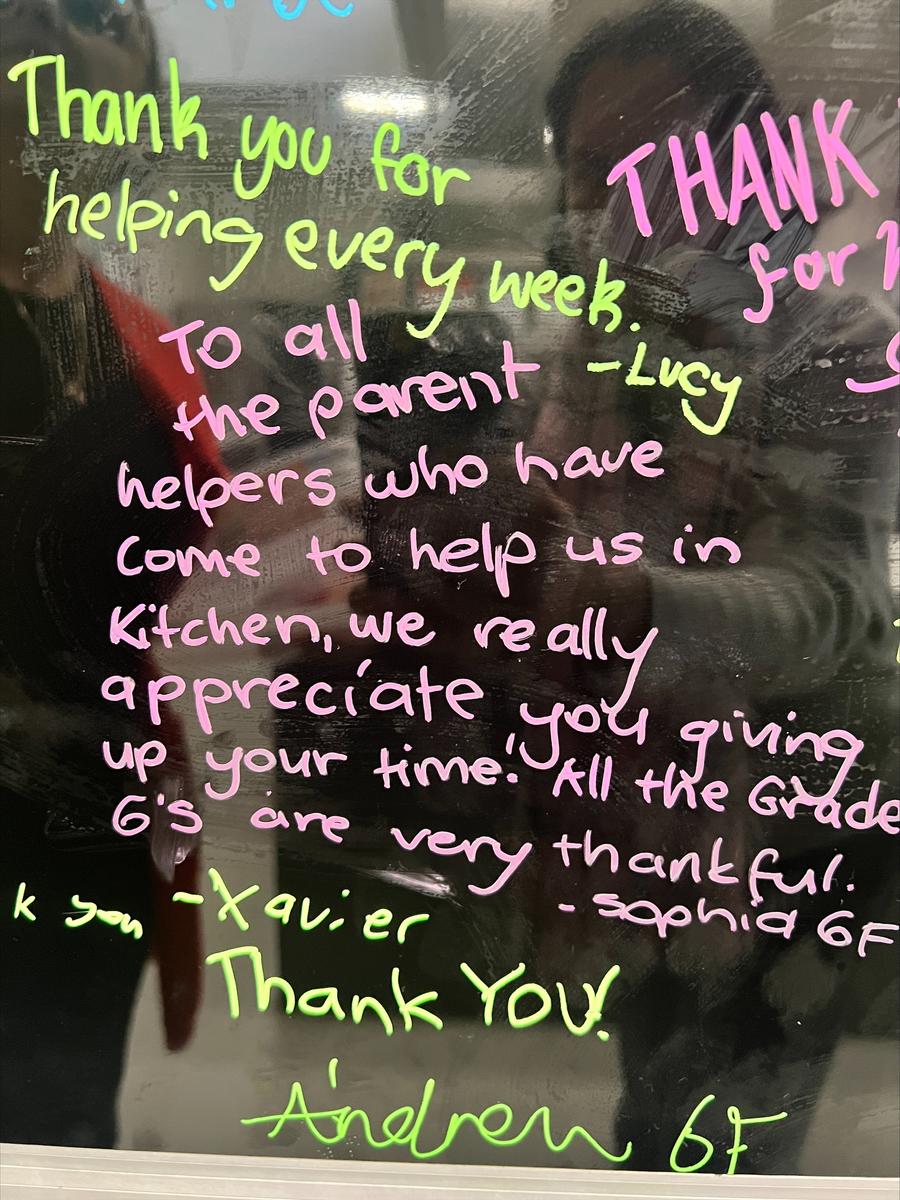 Thank you for
helping every week.
-Lucy
THANK
for
To all
the parent
helpers who have
come to help us in
Kitchen, we really
appreciate you giving
up your time! All the Grade
6's are very thankful.
-Sophia 6F
k you -Xavier
Thank YOU!
Andrew 6F